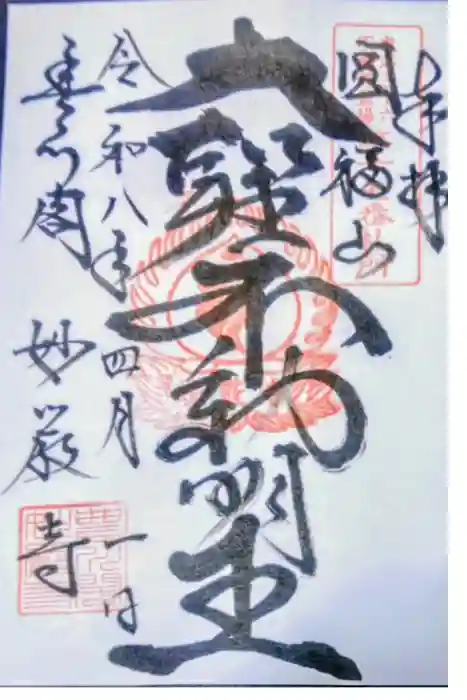 奉拝
圓福山
大聖不動明王
令和八年四月一日
豊川閣 妙嚴寺